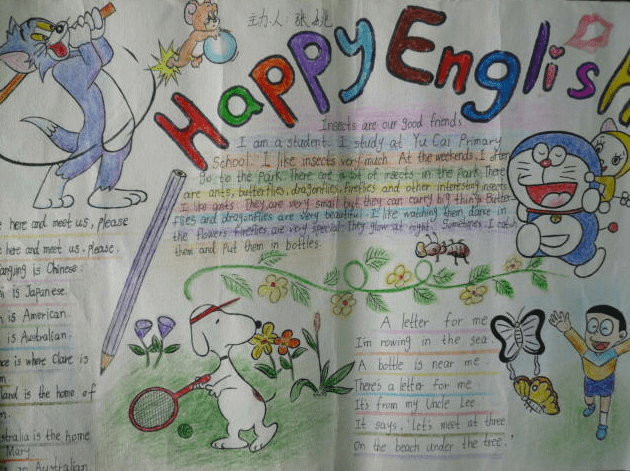 主办人: 张
Happy English
Insects are our good friends
I am a student. I study at Yu Cai Primary
School. I like insects very much. At the weekends, I often
go to the park. There are a lot of insects in the park. There
are ants, butterflies, dragonflies, fireflies and other interesting insects
I like ants They are very small but they can carry big things Butter-
flies and dragonflies are very beautiful. I like watching them dance in
the flowers fireflies are very special They glow at night. Sometimes I catch
them and put them in bottles.
e here and meet us, please
e here and meet us, please.
is Chinese.
i is Japanese.
is American.
is Australian.
ce is where Clare is
m
land is the home of
n.
stralia is the home
Mary.
an Australian.
A letter for me
I'm rowing in the sea.
A bottle is near me
There's a letter for me.
It's from my Uncle Lee.
It says, Let's meet at three
On the beach under the tree.'